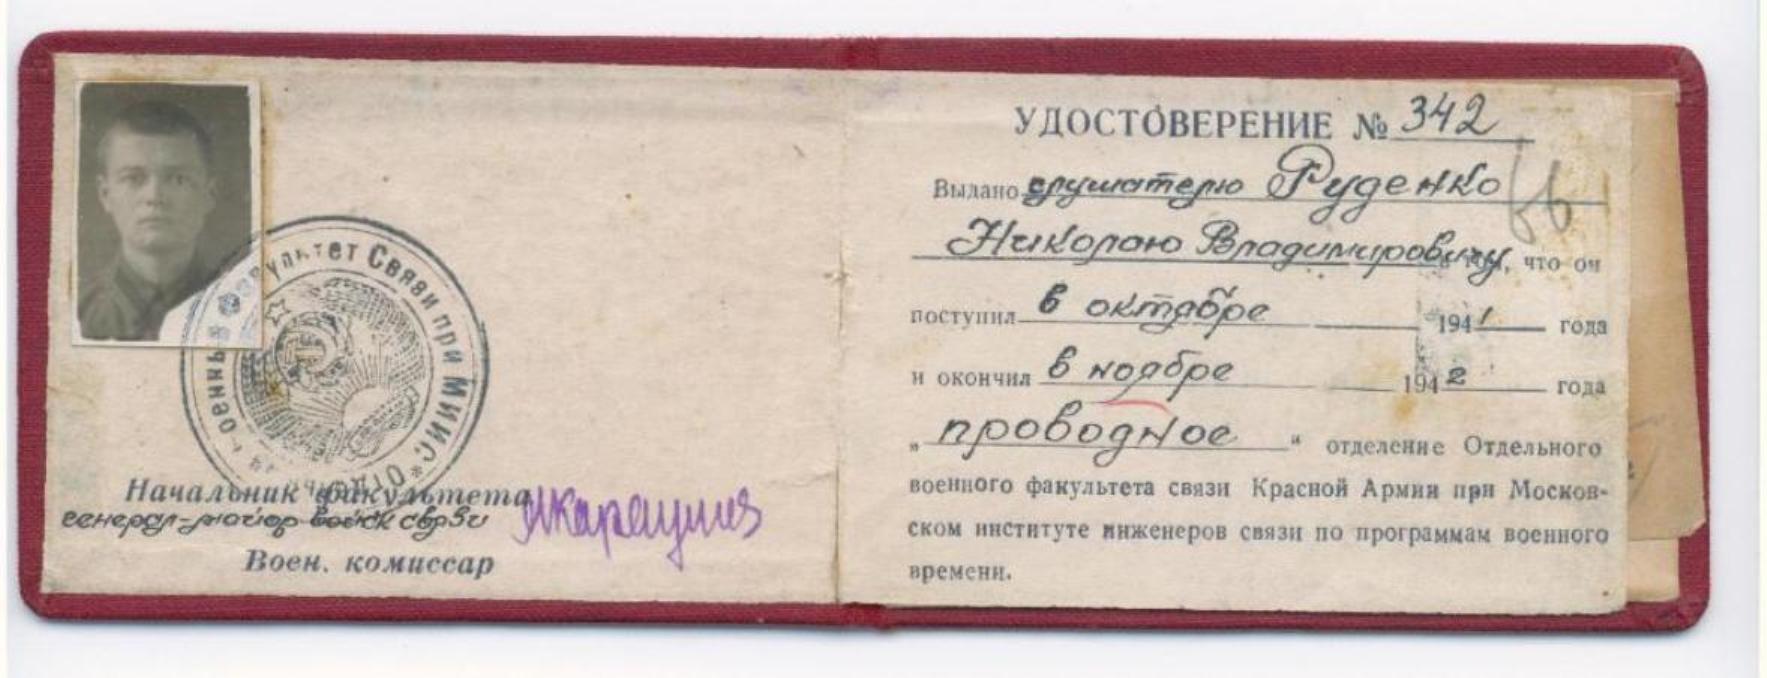 Отдельный Военный Факультет Связи при МИИС
Начальник факультета
генерал-майор войск связи
Воен. комиссар
УДОСТОВЕРЕНИЕ № 342
Выдано слушателю Руденко
66
Николаю Владимировичу в том, что он
поступил в октябре 1941 года
и окончил в ноябре 1942 года
„ проводное “ отделение Отдельного
военного факультета связи Красной Армии при Москов-
ском институте инженеров связи по программам военного
времени.